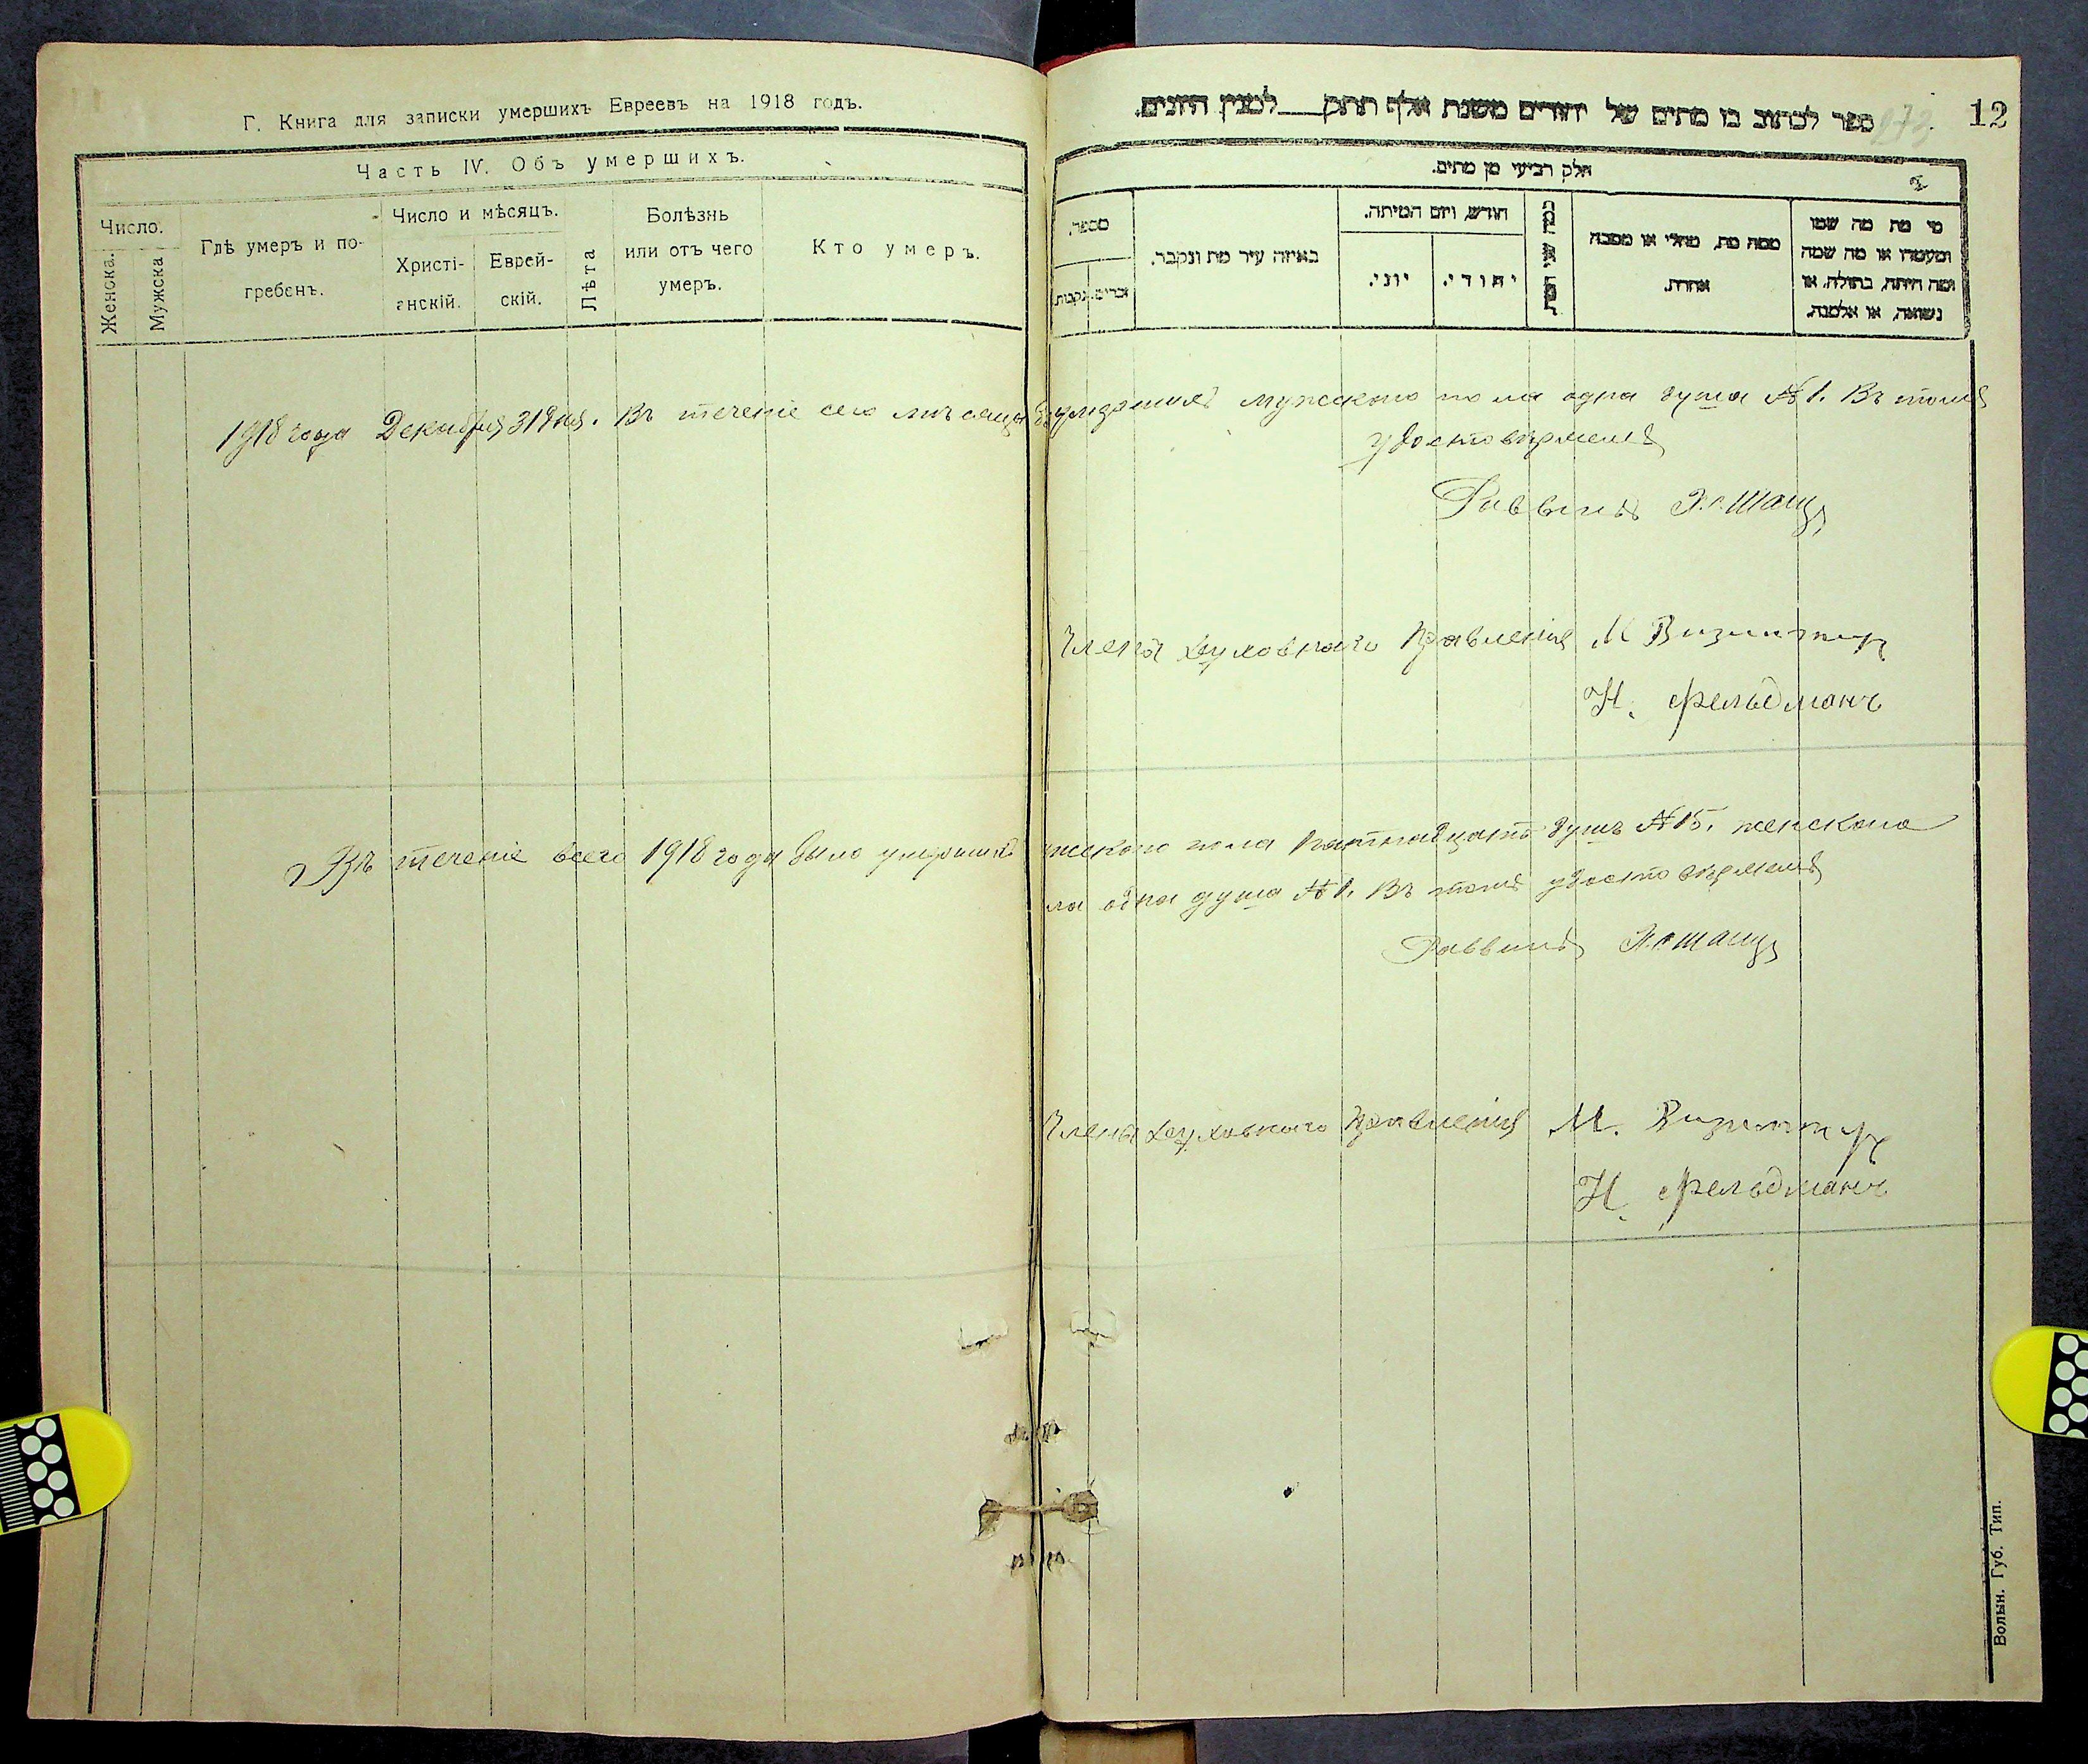 Г. Книга для записки умершихъ Евреевъ на 1918 годъ.
Часть IV. Объ умершихъ.
Число.
Женска.
Мужска
Гдѣ умеръ и по-
гребенъ.
Число и мѣсяцъ.
Христі-
анскій.
Еврей-
скій.
Лѣта
Болѣзнь
или отъ чего
умеръ.
Кто умеръ.
ספר לכתוב בו מתים של יהודים משנת אלף תתק___למנין היונים.
12
חלק רביעי מן מתים.
מספר.
זכרים.
נקבות.
באיזה עיר מת ונקבר.
חודש, ויום המיתה.
יהודי.
יוני.
כמה שני המת
ממה מת, מחלי או מסבה
אחרת.
מי מת מה שמו
ומעמדו או מה שמה
ומה היתה, בתולה, או
נשואה, או אלמנה.
1918 года Декабря 31 дня. Въ теченіе сего мѣсяца умершихъ мужского пола одна душа №1. Въ томъ
удостовѣряемъ
Раввинъ
Члены Духовнаго Правленія М
Н. Фельдманъ
Въ теченіе всего 1918 года было умершихъ мужского пола пятнадцать душъ №15. женскаго
ла одна душа №1. Въ томъ удостовѣряемъ
Раввинъ
Члены Духовнаго Правленія М.
Н. Фельдманъ
Волын. Губ. Тип.